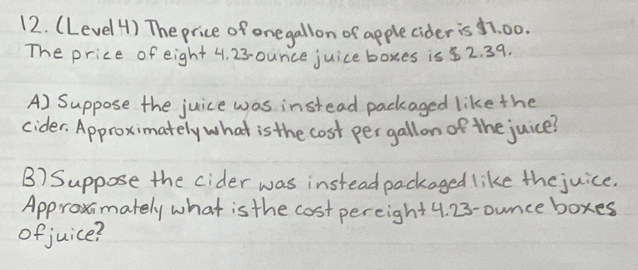 12. (Level 4) The price of one gallon of apple cider is $7.00.
The price of eight 4.23-ounce juice boxes is $2.39.
A) Suppose the juice was instead packaged like the
cider. Approximately what is the cost per gallon of the juice?
B) Suppose the cider was instead packaged like the juice.
Approximately what is the cost per eight 4.23-ounce boxes
of juice?